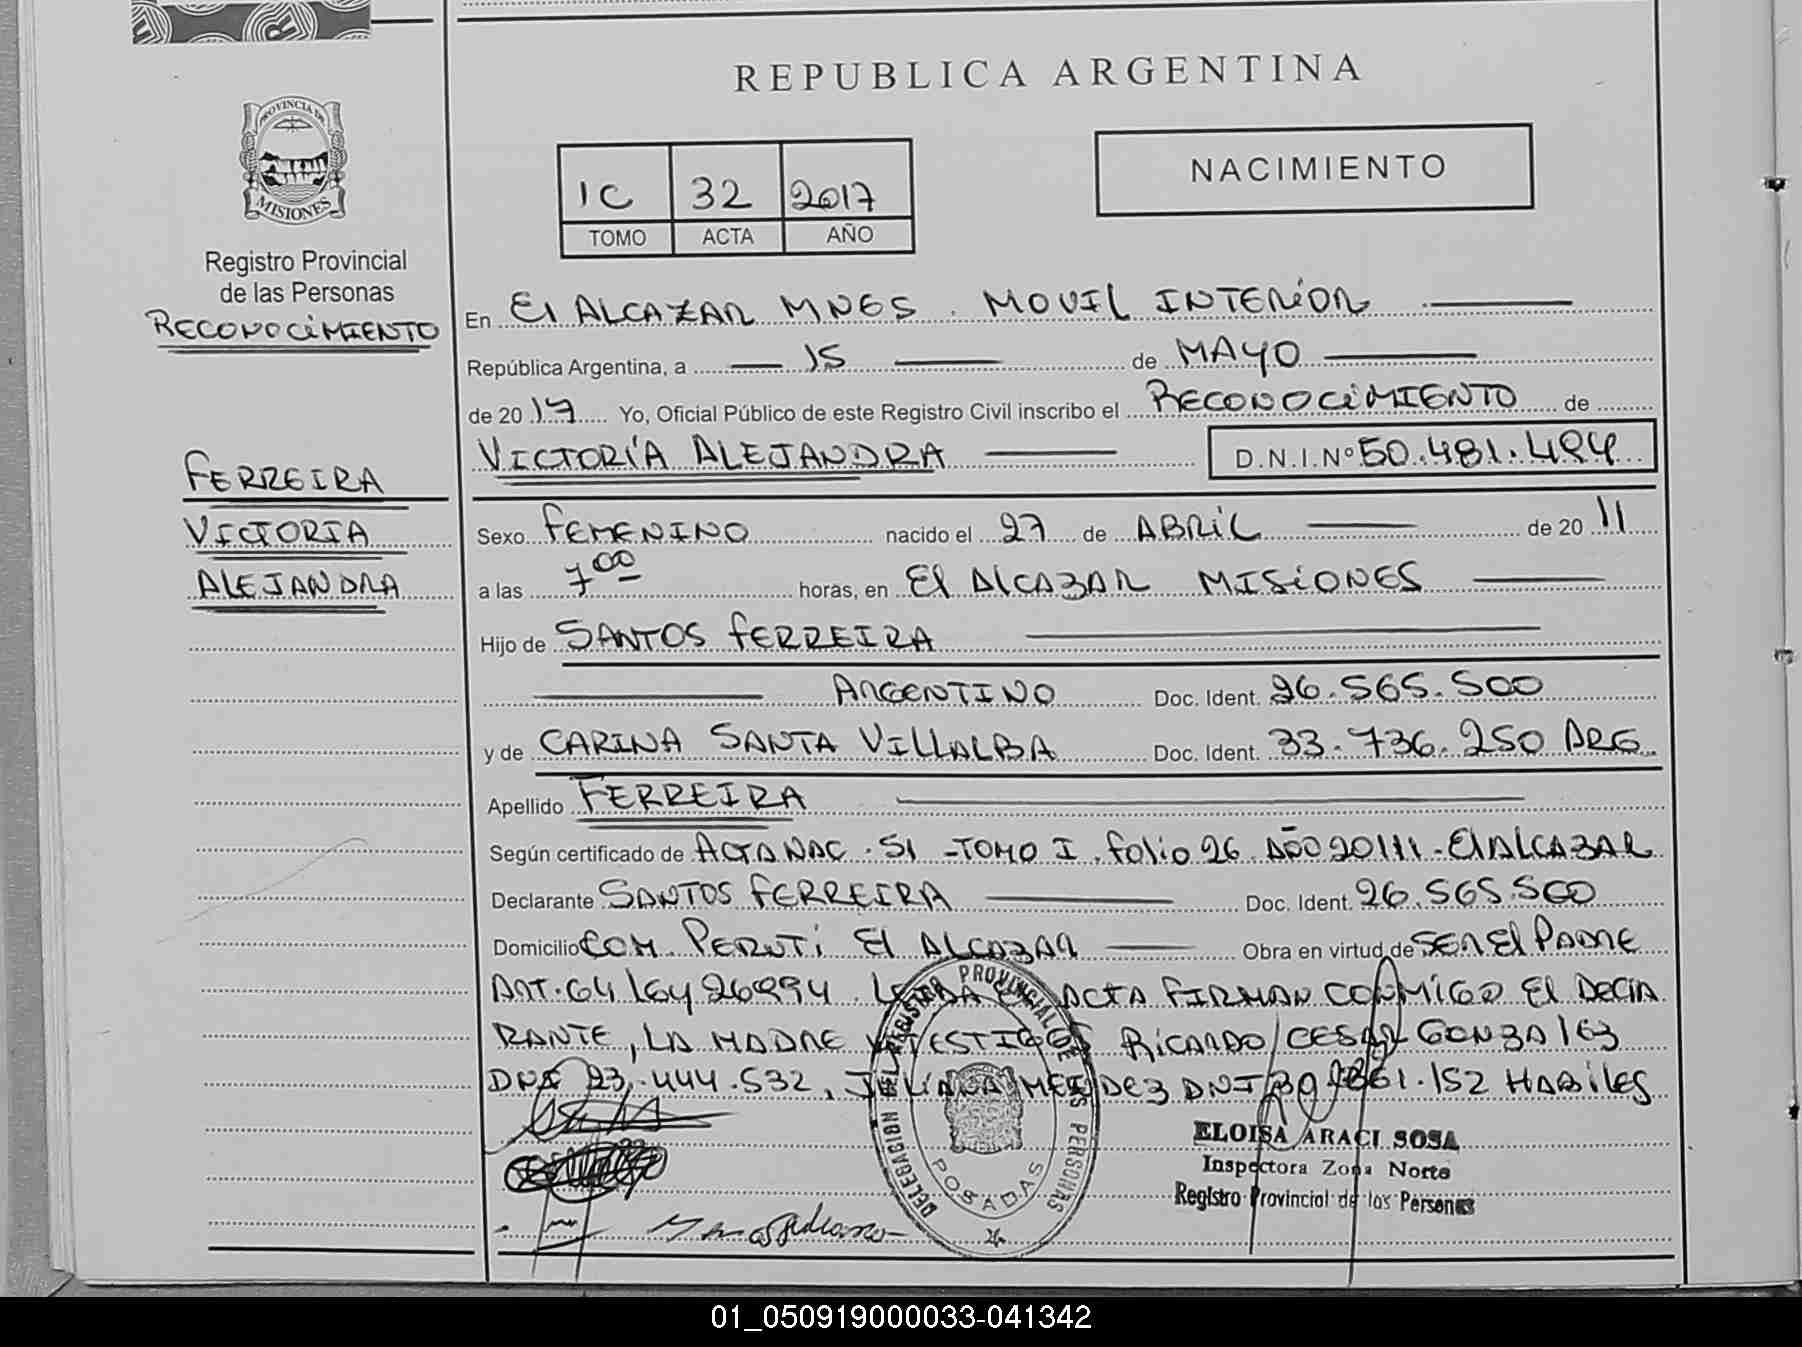 REPUBLICA ARGENTINA
PROVINCIA DE
MISIONES
Registro Provincial
de las Personas
RECONOCIMIENTO
FERREIRA
VICTORIA
ALEJANDRA
1C 32 2017
TOMO ACTA AÑO
NACIMIENTO
En El ALCAZAR MNES. MOVIL INTERIOR
República Argentina, a 15 de MAYO
de 2017 Yo, Oficial Público de este Registro Civil inscribo el RECONOCIMIENTO de
VICTORÍA ALEJANDRA D.N.I.Nº 50.481.494
Sexo FEMENINO nacido el 27 de ABRIL de 2011
a las 7 00 horas, en El AlCAZAR MISIONES
Hijo de SANTOS FERREIRA
ARGENTINO Doc. Ident. 26.565.500
y de CARINA SANTA VILLALBA Doc. Ident. 33.736.250 ARG
Apellido FERREIRA
Según certificado de ACTA NAC. 51 - TOMO I. folio 26. AÑO - El ALCAZAR
Declarante SANTOS FERREIRA Doc. Ident. 26.565.500
Domicilio COM. PERUTI El ALCAZAR Obra en virtud de SER El PADRE
ART. 64 lEy 26994. ACTA FIRMAN CONMIGO El DEClA
RANTE, LA MADRE y TESTIGOS RICARDO CESAR GONZAlEZ
DNI 23.444.532, JULIANA MENDEZ DNI HABILES
DELEGACION DEL REGISTRO PROVINCIAL DE LAS PERSONAS
POSADAS
ELOISA ARACI SOSA
Inspectora Zona Norte
Registro Provincial de las Personas
01_050919000033-041342